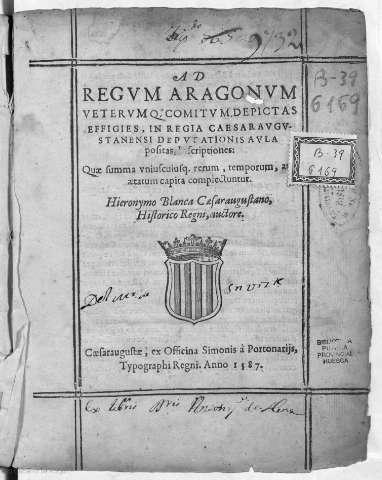 AD
REGVM ARAGONVM
VETERVMQ; COMITVM, DEPICTAS
EFFIGIES, IN REGIA CAESARAVGV-
STANENSI DEPVTATIONIS AVLA
positas, Inscriptiones:
Quæ summa vniuscuiusq. rerum, temporum, ac
ætatum capita complectuntur.
Hieronymo Blanca Cæsaraugustano,
Historico Regni, auctore.
B-39
6169
B-39
6169
Cæsaraugustæ, ex Officina Simonis à Portonarijs,
Typographi Regni. Anno 1587.
BIBLIOTECA
PUBLICA
PROVINCIAL
HUESCA
Ex libris